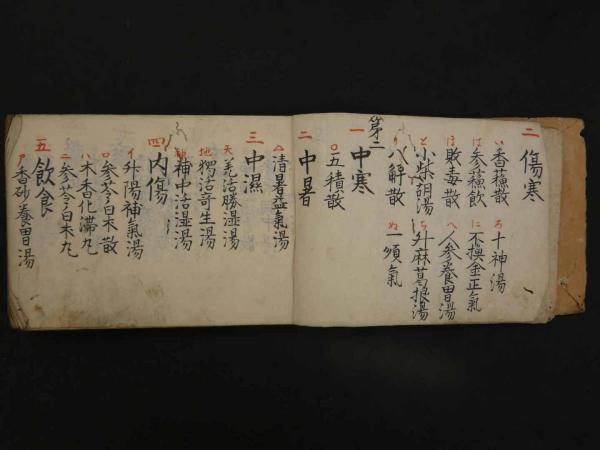 二 傷寒
い 香蘓散 ろ 十神湯
は 参蘓飲 に 不換金正氣
ほ 敗毒散 へ 人参養胃湯
と 小柴胡湯 ち 升麻葛根湯
り 八解散 ぬ 一順氣
第二
一 中寒
○ 五積散
二 中暑
△ 清暑益氣湯
三 中濕
天 羌活勝湿湯
地 獨活寄生湯
補中治湿湯
四 内傷
イ 升陽補氣湯
ロ 参苓白朮散
ハ 木香化滞丸
ニ 参苓白朮丸
五 飲食
ア 香砂養胃湯